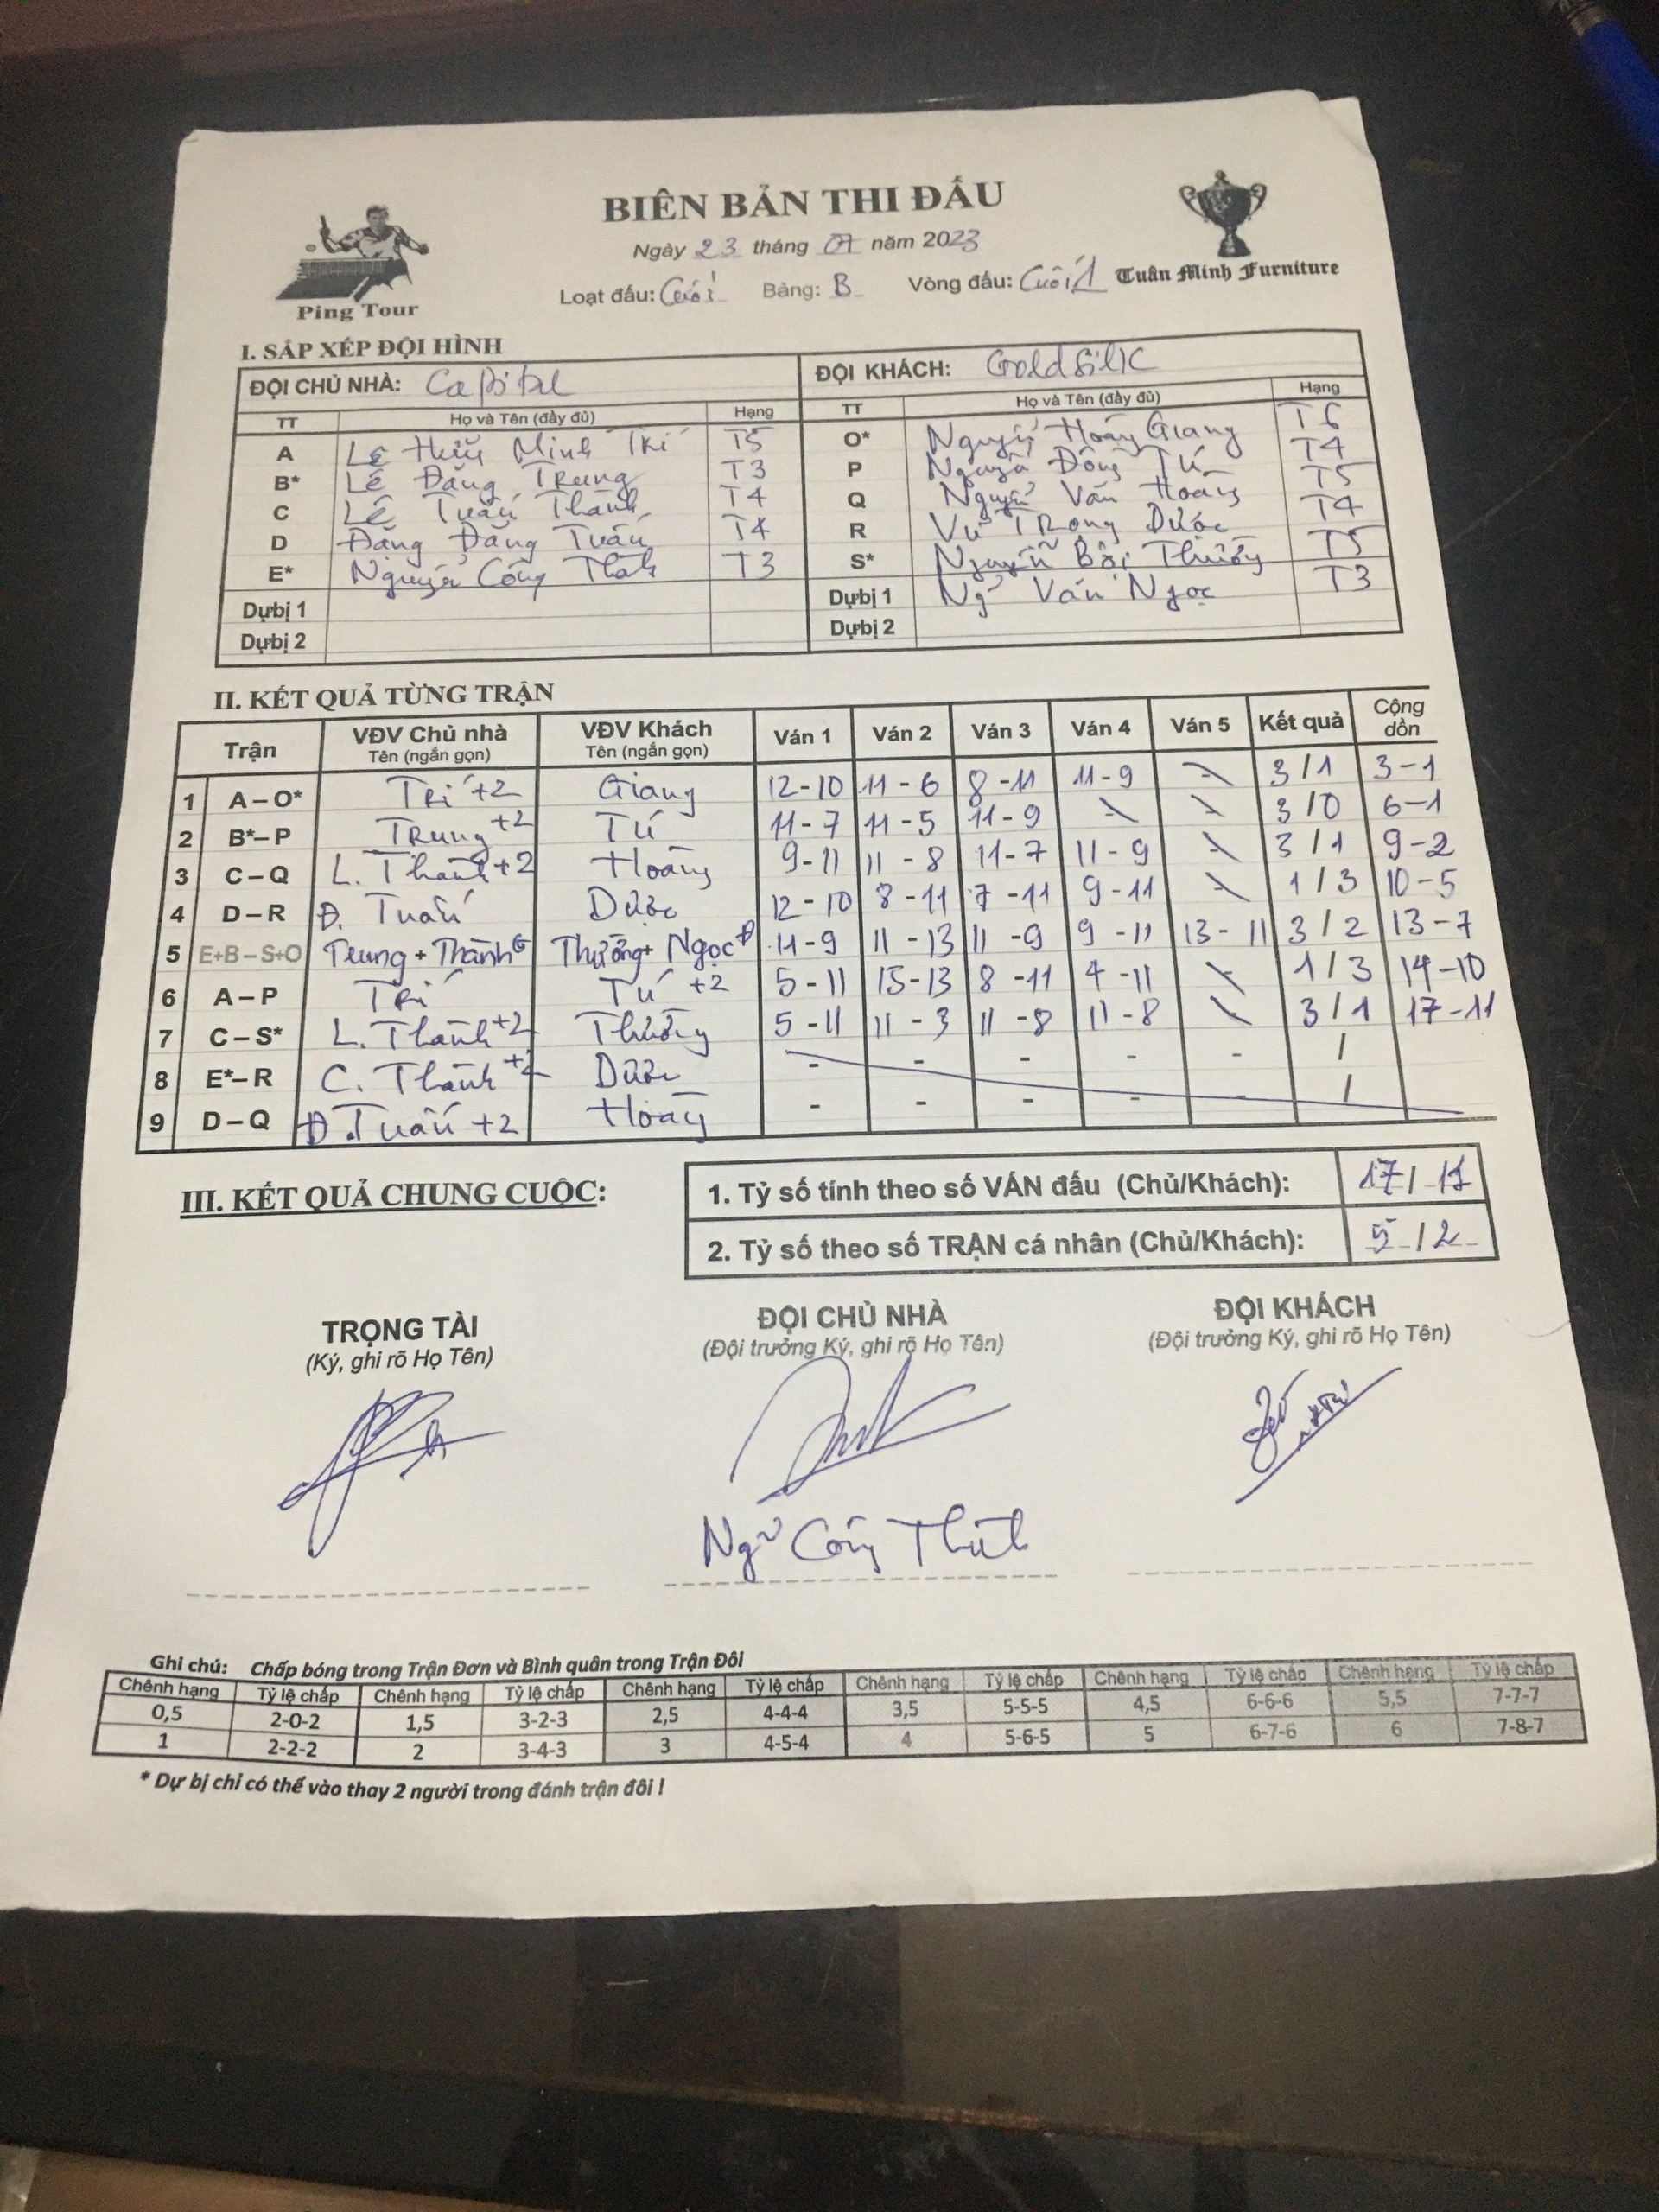 BIÊN BẢN THI ĐẤU
Ngày 23 tháng 07 năm 2023
Ping Tour
Loạt đấu: Cuối Bảng: B Vòng đấu: Cuối 1
Tuân Minh Furniture
I. SẮP XẾP ĐỘI HÌNH
ĐỘI CHỦ NHÀ: Capital ĐỘI KHÁCH: Goldsilk
TT Họ và Tên (đầy đủ) Hạng TT Họ và Tên (đầy đủ) Hạng
A Lê Hữu Minh Trí T5 O* Nguyễn Hoàng Giang T6
B* Lê Đăng Trung T3 P Nguyễn Đông Tú T4
C Lê Tuấn Thành T4 Q Nguyễn Văn Hoàng T5
D Đặng Đăng Tuấn T4 R Vũ Trọng Được T4
E* Nguyễn Công Thành T3 S* Nguyễn Bội Thưởng T5
Dự bị 1 Dự bị 1 Ngũ Văn Ngọc T3
Dự bị 2 Dự bị 2
II. KẾT QUẢ TỪNG TRẬN
Trận VĐV Chủ nhà VĐV Khách Ván 1 Ván 2 Ván 3 Ván 4 Ván 5 Kết quả Cộng dồn
Tên (ngắn gọn) Tên (ngắn gọn)
1 A – O* Trí +2 Giang 12-10 11-6 8-11 11-9 3/1 3-1
2 B* – P Trung +2 Tú 11-7 11-5 11-9 3/0 6-1
3 C – Q L. Thành +2 Hoàng 9-11 11-8 11-7 11-9 3/1 9-2
4 D – R Đ. Tuấn Được 12-10 8-11 7-11 9-11 1/3 10-5
5 E+B – S+O Trung + Thành Thưởng + Ngọc 11-9 11-13 11-9 9-11 13-11 3/2 13-7
6 A – P Trí Tú +2 5-11 15-13 8-11 4-11 1/3 14-10
7 C – S* L. Thành +2 Thưởng 5-11 11-3 11-8 11-8 3/1 17-11
8 E* – R C. Thành +2 Được - - - - - /
9 D – Q Đ. Tuấn +2 Hoàng - - - - - /
III. KẾT QUẢ CHUNG CUỘC:
1. Tỷ số tính theo số VÁN đấu (Chủ/Khách): 17/11
2. Tỷ số theo số TRẬN cá nhân (Chủ/Khách): 5/2
TRỌNG TÀI ĐỘI CHỦ NHÀ ĐỘI KHÁCH
(Ký, ghi rõ Họ Tên) (Đội trưởng Ký, ghi rõ Họ Tên) (Đội trưởng Ký, ghi rõ Họ Tên)
Ngũ Công Thành
Ghi chú: Chấp bóng trong Trận Đơn và Bình quân trong Trận Đôi
Chênh hạng Tỷ lệ chấp Chênh hạng Tỷ lệ chấp Chênh hạng Tỷ lệ chấp Chênh hạng Tỷ lệ chấp Chênh hạng Tỷ lệ chấp Chênh hạng Tỷ lệ chấp
0,5 2-0-2 1,5 3-2-3 2,5 4-4-4 3,5 5-5-5 4,5 6-6-6 5,5 7-7-7
1 2-2-2 2 3-4-3 3 4-5-4 4 5-6-5 5 6-7-6 6 7-8-7
* Dự bị chỉ có thể vào thay 2 người trong đánh trận đôi !